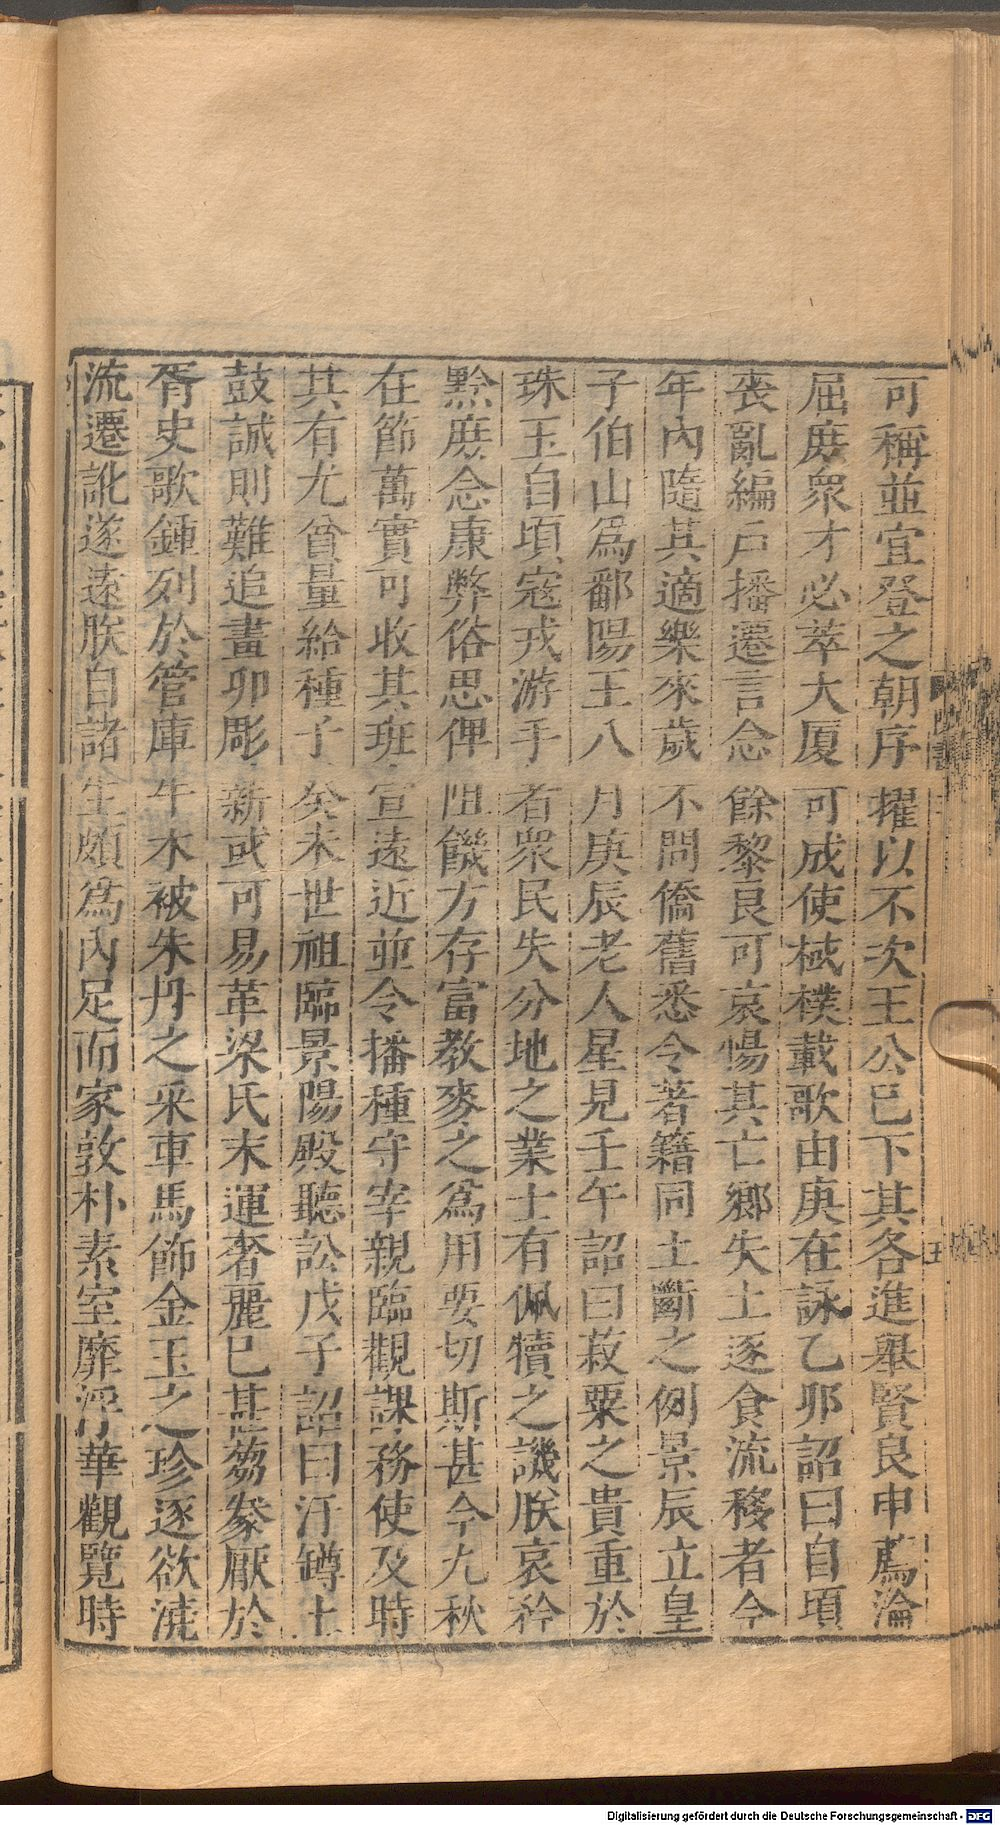 可稱並宜登之朝序擢以不次王公已下其各進舉賢良申薦淪
屈庶衆才必萃大厦可成使棫樸載歌由庚在詠乙卯詔曰自頃
喪亂編戶播遷言念餘黎良可哀惕其亡鄉失土逐食流移者今
年內隨其適樂來歲不問僑舊悉令著籍同土斷之例景辰立皇
子伯山爲鄱陽王八月庚辰老人星見壬午詔曰菽粟之貴重於
珠玉自頃寇戎游手者衆民失分地之業士有佩犢之譏朕哀矜
黔庶念康弊俗思俾阻饑方存富教麥之爲用要切斯甚今九秋
在節萬實可收其班宣遠近並令播種守宰親臨觀課務使及時
其有尤貧量給種子癸未世祖臨景陽殿聽訟戊子詔曰汙罇土
鼓誠則難追畫卯彫薪或可易革梁氏末運奢麗已甚芻豢厭於
胥史歌鍾列於管庫土木被朱丹之采車馬飾金玉之珍逐欲澆
流遷訛遂遠朕自諸生頗爲內足而家敦朴素室靡浮華觀覽時
五
Digitalisierung gefördert durch die Deutsche Forschungsgemeinschaft - DFG